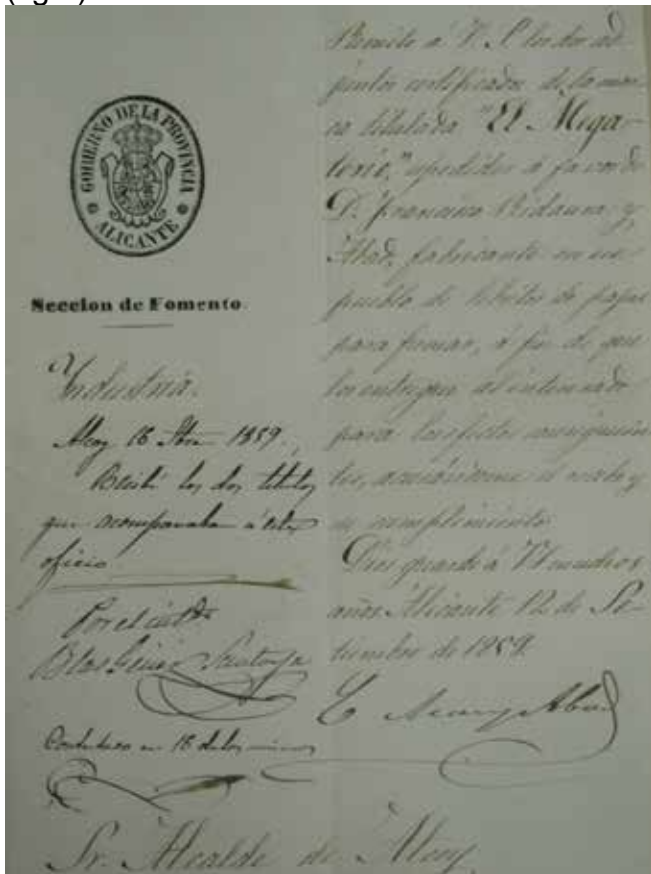 GOBIERNO DE LA PROVINCIA
ALICANTE
Seccion de Fomento.
Industria.
Alcoy 16 1859.
Recibi los dos titulos
que acompañaban á este
oficio
Por el
Blas
en 16 de los mismos
Remito á V. S. los dos ad
juntos certificados de la mar
ca titulada "El Mega
terio," espedidos á favor de
D. Francisco Ridaura y
Abad, fabricante en ese
pueblo de libritos de papel
para fumar, á fin de que
los entregue al interesado
para los efectos consiguien
tes, el recibo y
su cumplimiento.
Dios guarde á V. muchos
años. Alicante 12 de Se-
tiembre de 1859.
Sr. Alcalde de Alcoy